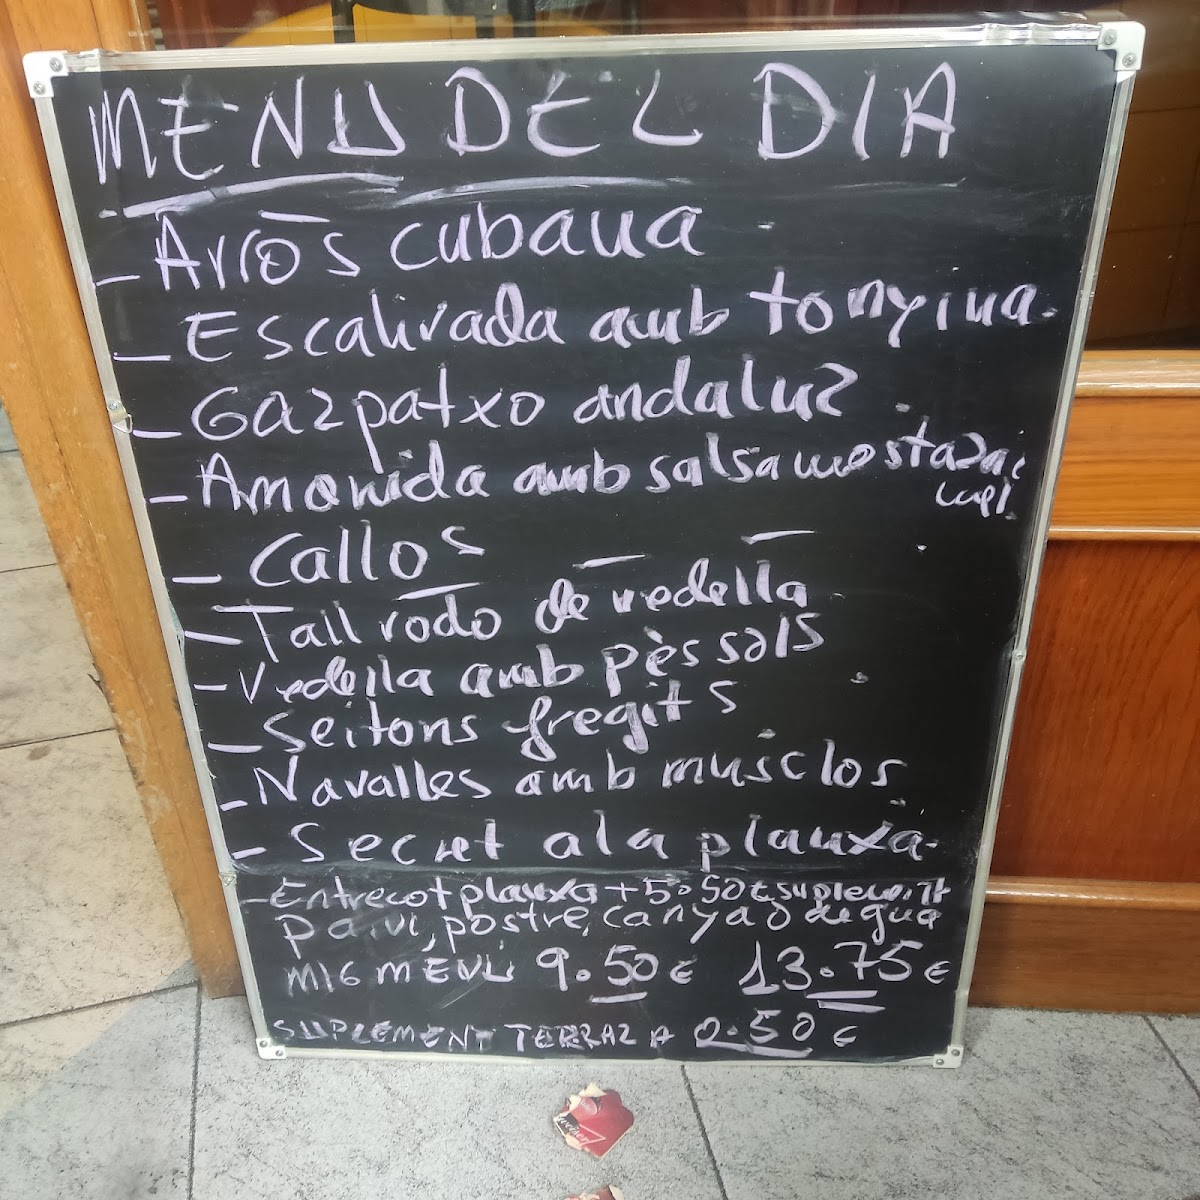 MENU DEL DIA
- Arròs cubana
- Escalivada amb tonyina.
- Gazpatxo andaluz
- Amanida amb salsa mostaza i
mel.
- Callos
- Tall rodo de vedella
- Vedella amb pèssols
- Seitons fregits
- Navalles amb musclos
- Secret a la planxa.
- Entrecot planxa + 5.50 €
pa, vi, postre, canya o de gua
MIG MENU 9.50 € 13.75 €
SUPLEMENT TERRAZA 0.50 €